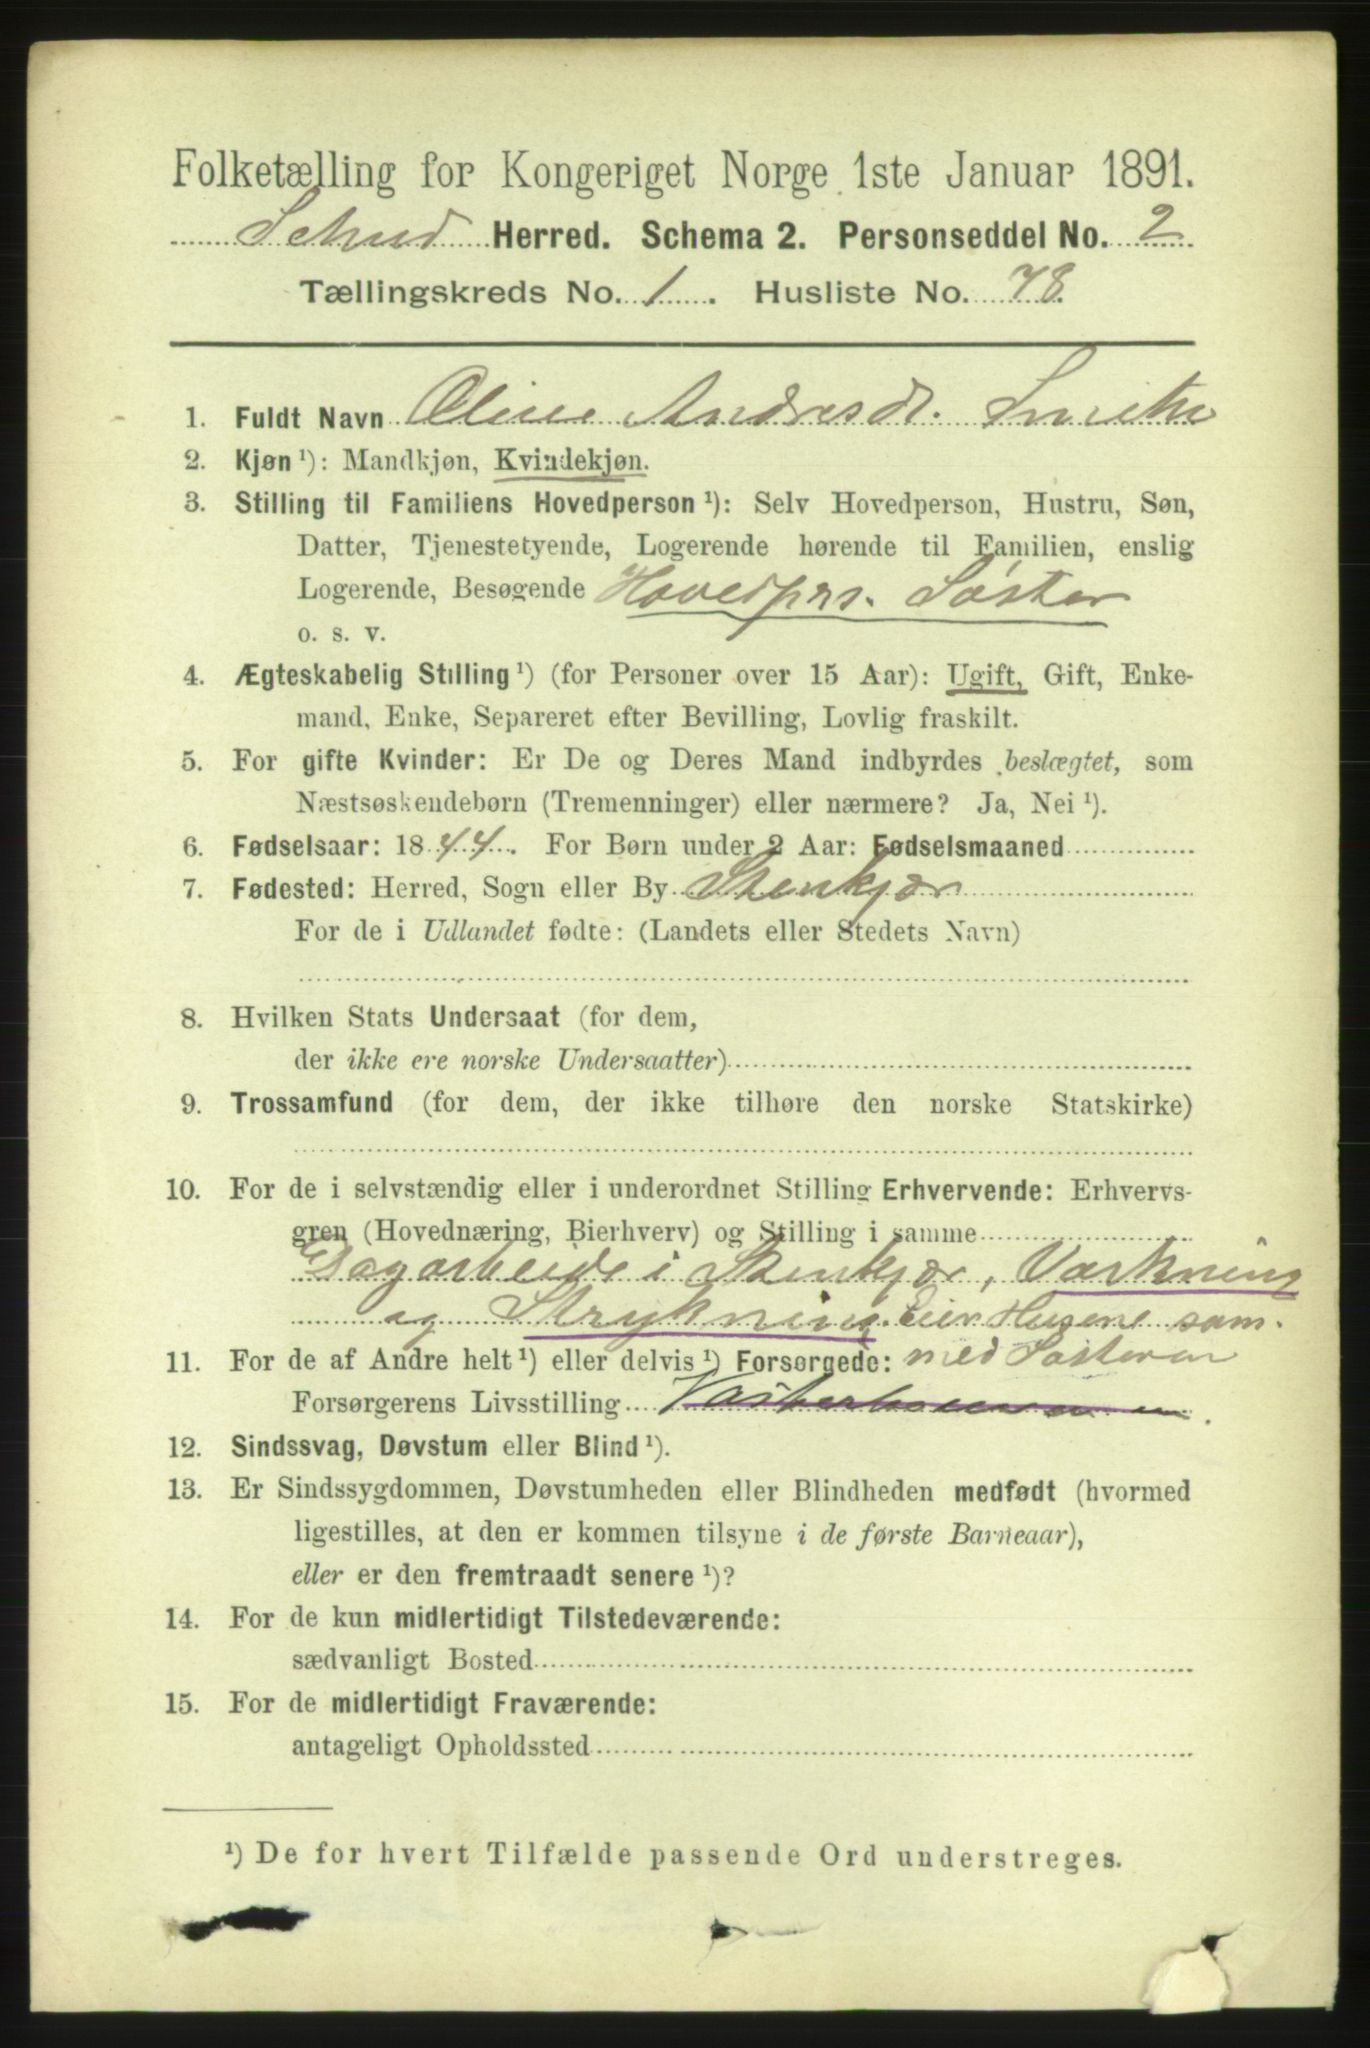 Folketælling for Kongeriget Norge 1ste Januar 1891.
Herred. Schema 2. Personseddel No. 2
Tællingskreds No. 1. Husliste No. 78.
1. Fuldt Navn Oline Andresdt.
2. Kjøn ¹): Mandkjøn, Kvindekjøn.
3. Stilling til Familiens Hovedperson ¹): Selv Hovedperson, Hustru, Søn,
Datter, Tjenestetyende, Logerende hørende til Familien, enslig
Logerende, Besøgende Hovedpers. Søster
o. s. v.
4. Ægteskabelig Stilling ¹) (for Personer over 15 Aar): Ugift, Gift, Enke-
mand, Enke, Separeret efter Bevilling, Lovlig fraskilt.
5. For gifte Kvinder: Er De og Deres Mand indbyrdes beslægtet, som
Næstsøskendebørn (Tremenninger) eller nærmere? Ja, Nei ¹).
6. Fødselsaar: 1844. For Børn under 2 Aar: Fødselsmaaned
7. Fødested: Herred, Sogn eller By Stenkjær
For de i Udlandet fødte: (Landets eller Stedets Navn)
8. Hvilken Stats Undersaat (for dem,
der ikke ere norske Undersaatter)
9. Trossamfund (for dem, der ikke tilhøre den norske Statskirke)
10. For de i selvstændig eller i underordnet Stilling Erhvervende: Erhvervs-
gren (Hovednæring, Bierhverv) og Stilling i samme
Dagarbeide i Stenkjær, Vaskning
og Strykning. Eier Husene sam-
11. For de af Andre helt ¹) eller delvis ¹) Forsørgede: med Søsteren
Forsørgerens Livsstilling
12. Sindssvag, Døvstum eller Blind ¹).
13. Er Sindssygdommen, Døvstumheden eller Blindheden medfødt (hvormed
ligestilles, at den er kommen tilsyne i de første Barneaar),
eller er den fremtraadt senere ¹)?
14. For de kun midlertidigt Tilstedeværende:
sædvanligt Bosted
15. For de midlertidigt Fraværende:
antageligt Opholdssted
¹) De for hvert Tilfælde passende Ord understreges.